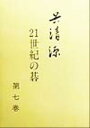 呉清源
21世紀の碁
第七巻